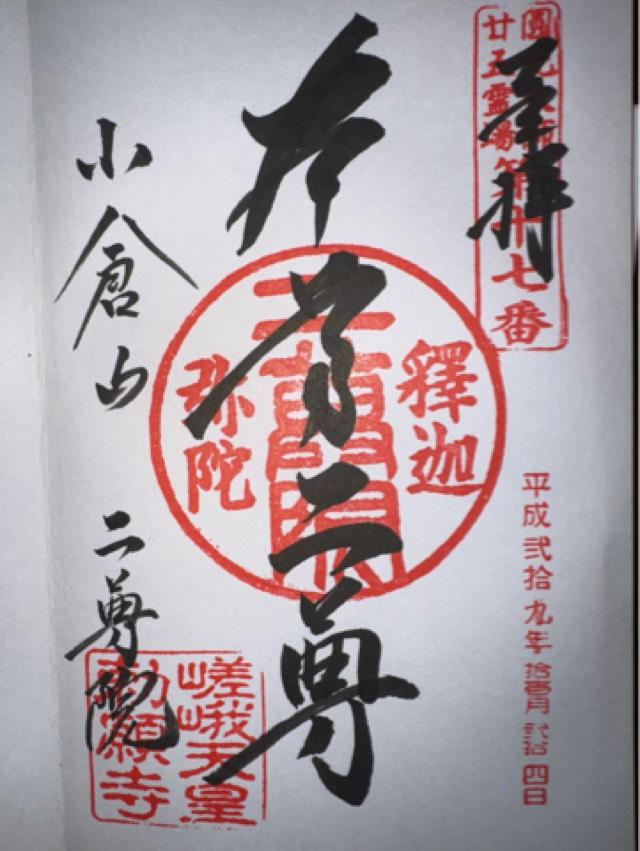 圓光大師
廿五霊場第十七番
奉拝
平成弐拾九年拾壱月弐拾四日
本尊二尊
釋迦
二尊院
弥陀
小倉山
二尊院
嵯峨天皇
勅願寺